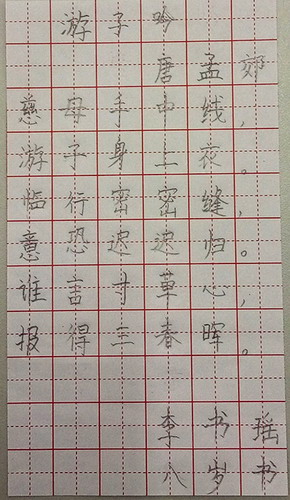 游子吟
唐 孟郊
慈母手中线，
游子身上衣。
临行密密缝，
意恐迟迟归。
谁言寸草心，
报得三春晖。
李书瑶
八岁书